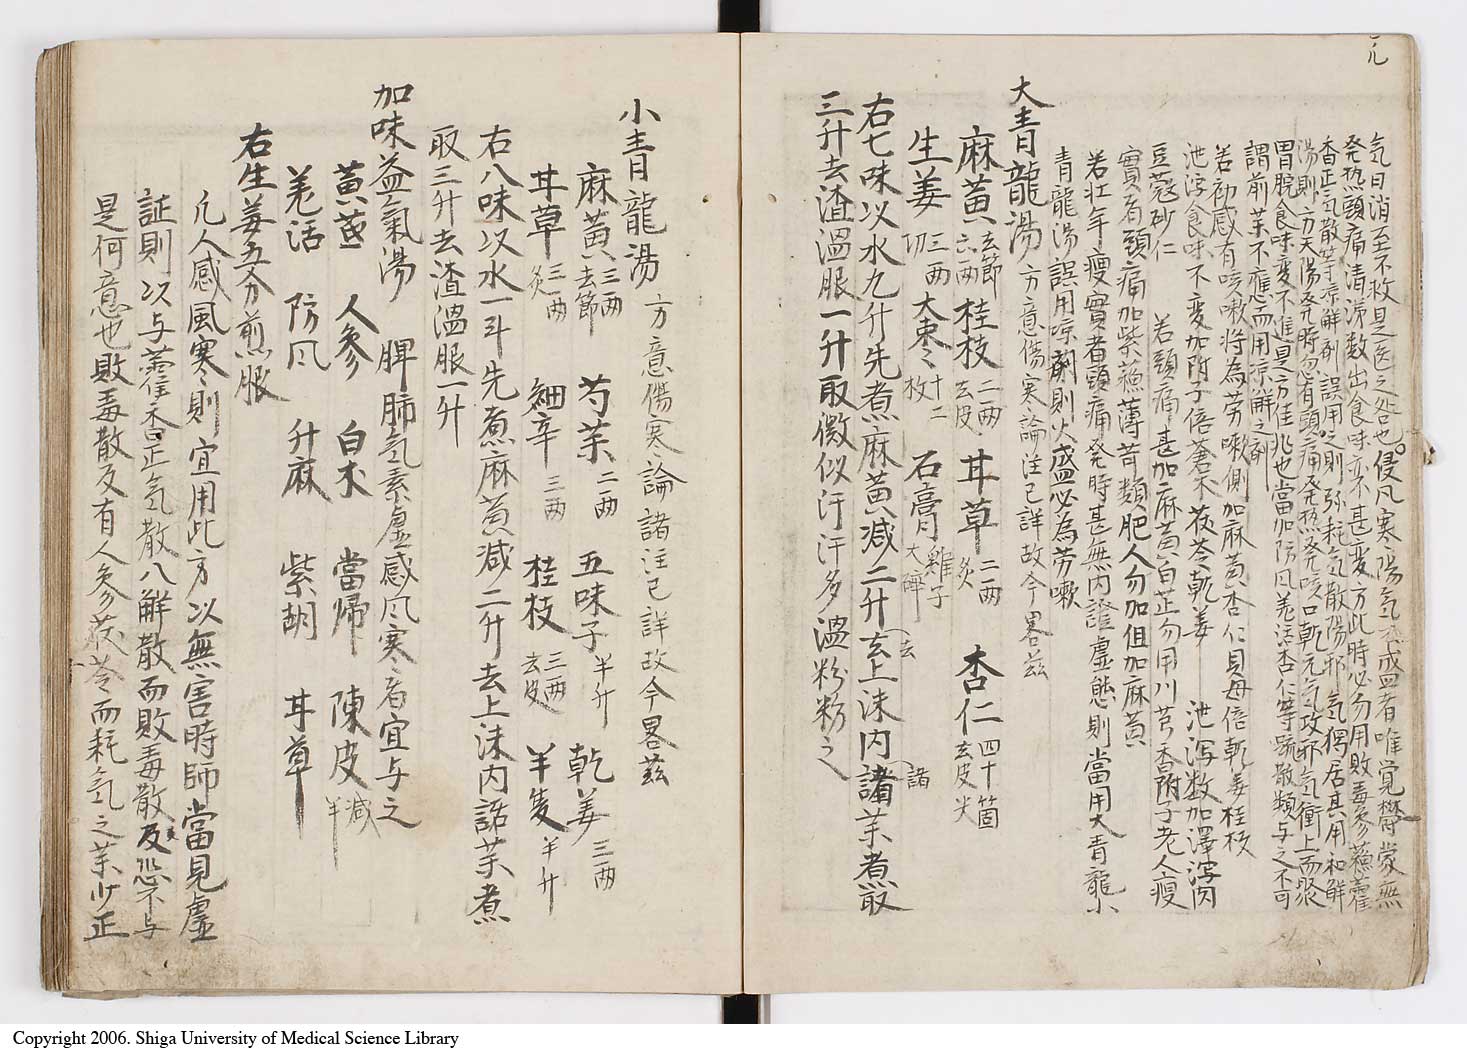 气日消至不救是医之咎也侵风寒陽气不盛者唯覚欝蒙無
発热頭痛清涕数出食味亦不甚変方此時必勿用敗毒參蘓藿
香正气散等凉解剤誤用之則弥耗气散陽邪气猶居其用和解
胃脘食味変不進是方佳兆也當加防风羌活杏仁等疏散類与之不可
謂前茱不應而用凉解之剤
若初感有咳嗽将為労嗽側加麻黄杏仁貝母倍乾姜桂枝
泄泻食味不変加附子倍蒼朮茯苓乾姜 泄泻数加澤泻肉
豆蔻砂仁 若頭痛甚加麻黄白芷勿用川芎香附子老人痩
實有頭痛加紫蘓薄苛類肥人勿加但加麻黄
若壮年痩實者頭痛発時甚無内證虚態則當用大青龍小
青龍湯誤用凉剤則火盛必為労嗽
大青龍湯 方意傷寒論注已詳故今畧茲
麻黄 六两去節 桂枝 二两去皮 甘草 二两炙 杏仁 四十箇去皮尖
生姜 三两切 大棗 十二枚 石膏 雞子大碑
右七味以水九升先煮麻黄減二升去上沫内諸茱煮取
三升去渣温服一升取微似汗汗多温粉粉之
小青龍湯 方意傷寒論諸注已詳故今畧茲
麻黄 三两去節 芍茱 二两 五味子 半升 乾姜 三两
甘草 三两炙 細辛 三两 桂枝 三两去皮 半夏 半升
右八味以水一斗先煮麻黄減二升去上沫内諸茱煮
取三升去渣温服一升
加味益氣湯 脾肺气素虚感风寒者宜与之
黄芪 人參 白朮 當帰 陳皮 減半
羌活 防风 升麻 紫胡 甘草
右生姜五分煎服
凡人感風寒則宜用此方以無害時師當見虚
証則以与藿香正气散八解散而敗毒散及恐不与
是何意也敗毒散及有人參茯苓而耗气之茱少正